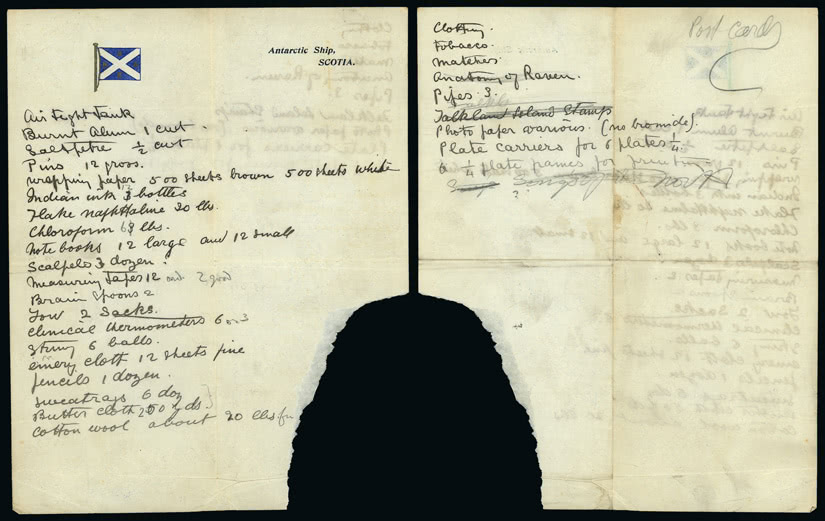 Antarctic Ship,
SCOTIA.
Air tight tank
Burnt Alum 1 cwt.
Saltpetre ½ cwt
Pins 12 gross.
wrapping paper 500 sheets brown 500 sheets white
Indian ink 3 bottles
Flake naphthaline 20 lbs.
Chloroform lbs.
Note books 12 large and 12 small
Scalpels 3 dozen.
Measuring tapes 12 and 2 good
Brain spoons 2
Tow 2 Sacks.
Clinical thermometers 6
String 6 balls.
emery cloth 12 sheets fine
pencils 1 dozen.
sweatrags 6 doz
Butter cloth 200 yds.
Cotton wool about 20 lbs
Post Cards
Clothing.
Tobacco.
Matches.
Anatomy of Raven.
Pipes 3.
Falkland Island Stamps
Photo paper various. (no bromide).
Plate carriers for 6 plates ¼.
6 ¼ plate frames for printing
?